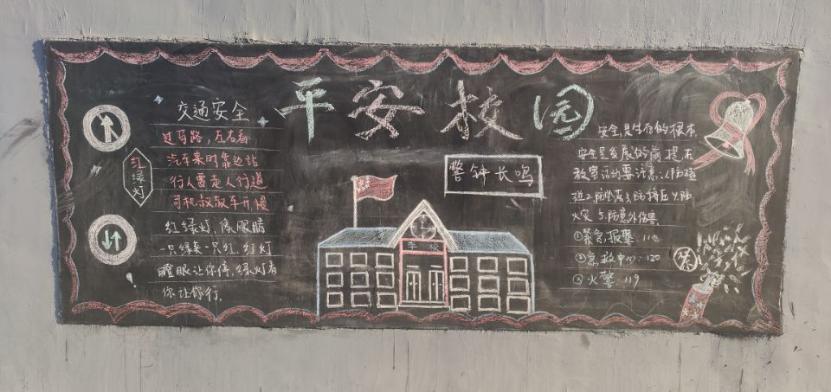 平安校园
交通安全
红绿灯
过马路,左右看
汽车来时靠边站
行人要走人行道
司机
红绿灯,像眼睛
一只绿来一只红,红灯
瞪眼让你停,绿灯看
你让你行.
警钟长鸣
学校
安全是生存的根本,
安全是发展的前提.在
教室活动要注意:1.防磕
火灾 5.防意外伤害.
①紧急报警:110
②急救中心:120
③火警:119